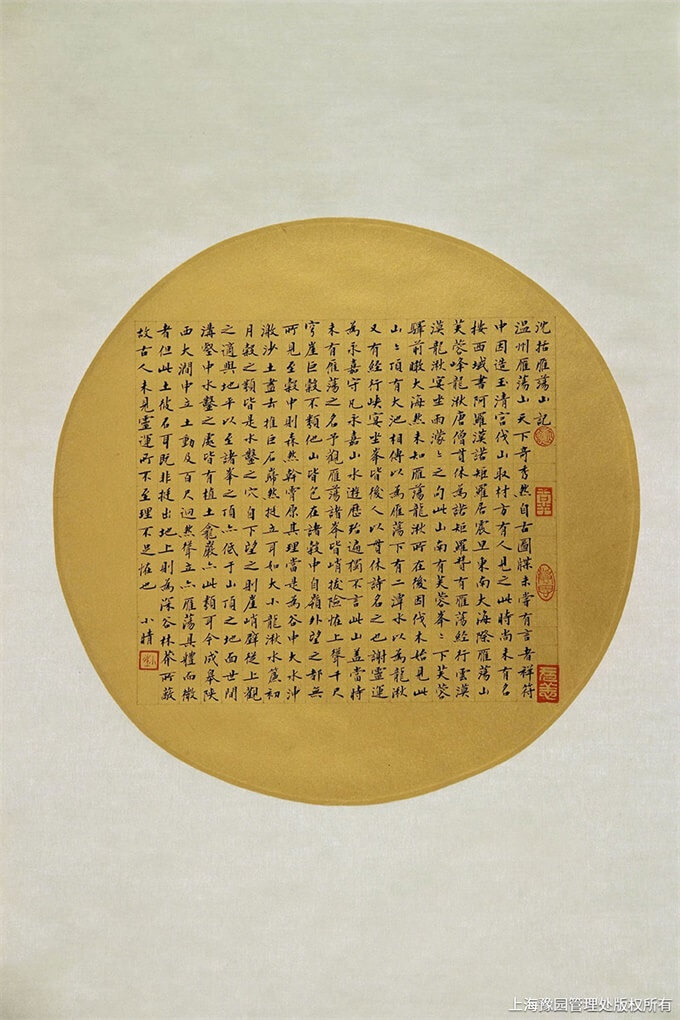 沈括雁蕩山記
温州雁蕩山天下奇秀然自古圖牒未嘗有言者祥符
中因造玉清宫伐山取材方有人見之此時尚未有名
按西域書阿羅漢諾矩羅居震旦東南大海際雁蕩山
芙蓉峰龍湫唐僧貫休為諾矩羅贊有雁蕩經行雲漠
漠龍湫宴坐雨濛々之句此山南有芙蓉峯々下芙蓉
驛前瞰大海然未知雁蕩龍湫所在後因伐木始見此
山々頂有大池相傳以為雁蕩下有二潭水以為龍湫
又有經行峽宴坐峯皆後人以貫休詩名之也謝靈運
為永嘉守凡永嘉山水遊歷殆遍獨不言此山蓋當時
未有雁蕩之名予觀雁蕩諸峯皆峭拔險怪上聳千尺
穹崖巨穀不類他山皆包在諸穀中自嶺外望之都無
所見至穀中則森然幹霄原其理當是為谷中大水沖
激沙土盡去惟巨石巋然挺立耳如大小龍湫水簾初
月穀之類皆是水鑿之穴自下望之則崖峭壁從上觀
之適與地平以至諸峯之頂亦低于山頂之地面世間
溝壑中水鑿之處皆有植土龕巖亦此類耳今成皋陝
西大澗中立土動及百尺迥然聳立亦雁蕩具體而微
者但此土彼石耳既非挺出地上則為深谷林莽所蔽
故古人未見靈運所不至理不足怪也 小晴
上海豫园管理处版权所有